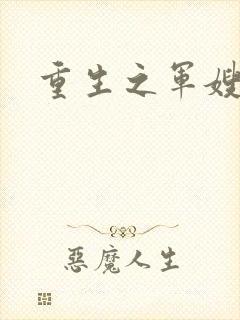 重生之军嫂
惡魔人生